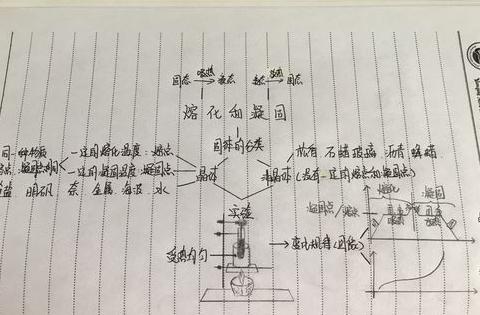 固态 吸热 液态 液态 放热 固态
熔化和凝固
固体的分类
同一种物质
一定的熔化温度：熔点
松香 石蜡 玻璃 沥青 蜂蜡
一定的凝固温度：凝固点
晶体
非晶体（没有一定的熔点和凝固点）
盐 明矾 萘 金属 海波 水
熔化 凝固
实验
凝固点/熔点
受热均匀
变化规律（图象）